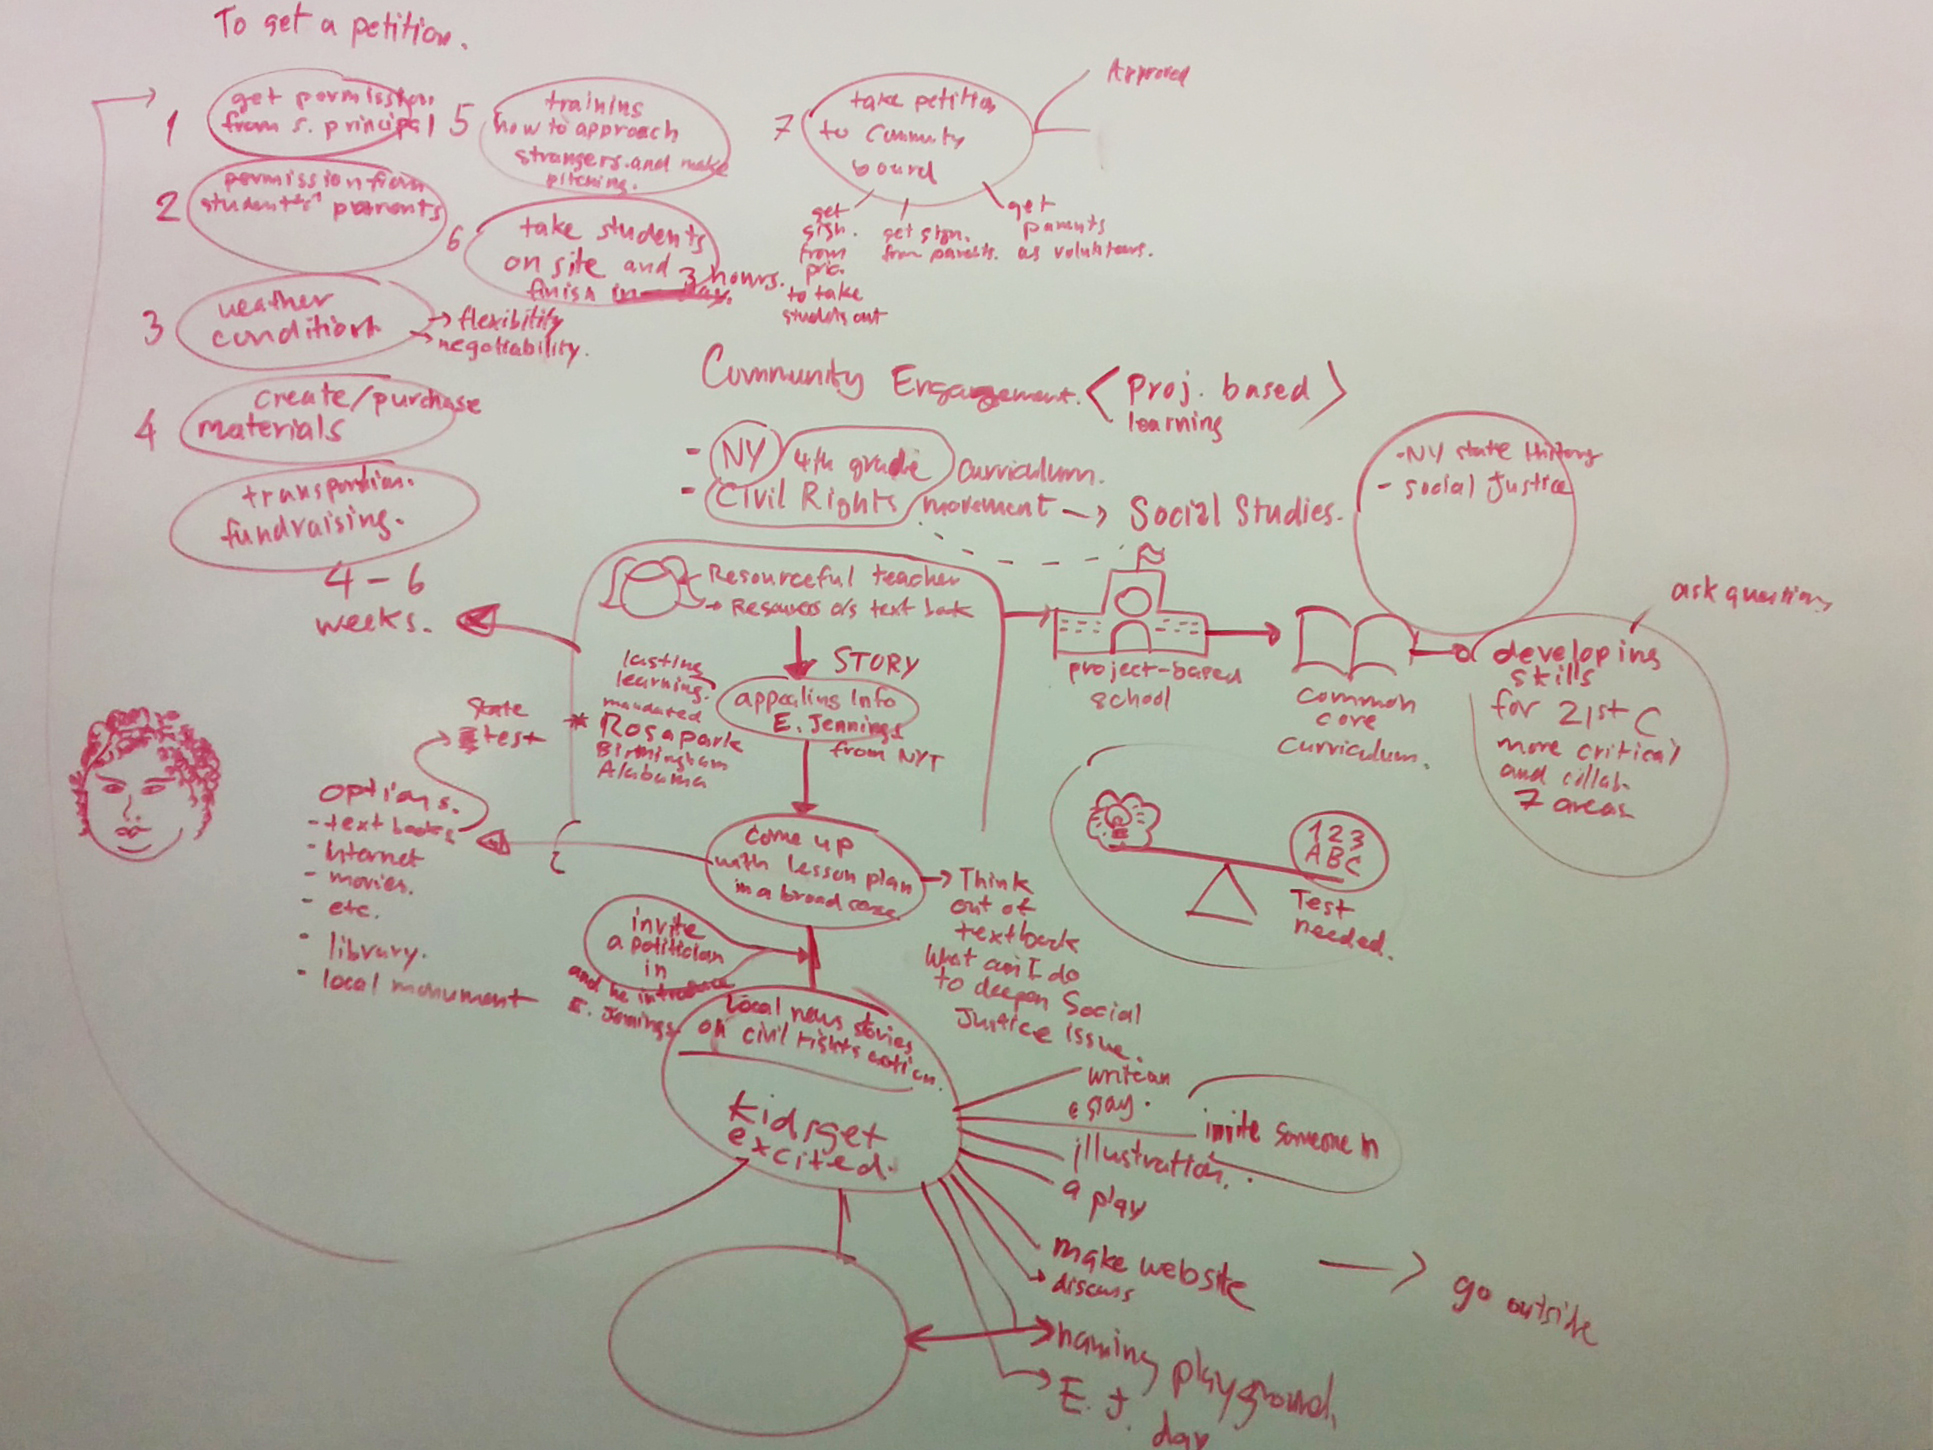 To get a petition.
1
get permission
from s. principal
2
permission from
student's parents
3
weather
condition
→ flexibility
→ negotiability.
4
create/purchase
materials
fundraising.
4-6
weeks.
5
training
how to approach
strangers. and make
pitching.
6
take students
on site and 3 hours.
finish in
7
take petition
to Community
board
Approved
get
sign.
from
pric.
to take
studets out
get sign.
from parents.
get
parents
as volunteers.
Community Engagement. < Proj. based >
learning
- NY 4th grade curriculum.
- Civil Rights movement → Social Studies.
- NY state History
- social justice
Resourceful teacher
→ Resources o/s text book
STORY
lasting
learning.
mandated
* Rosa park
Birmingham
Alabama
appealing info
E. Jennings
from NYT
project-based
school
common
core
curriculum.
ask questions
developing
skills
for 21st C
more critical
and collab.
7 areas
state
test
options.
- textbooks
- Internet
- movies.
- etc.
- library.
- local monument
come up
with lesson plan
in a broad
→ Think
out of
textbook
What can I do
to deepen Social
Justice issue.
123
ABC
Test
needed.
invite
a politician
in
and he introduce
E. Jennings
local news stories
on civil rights action.
kids get
excited.
write an
essay.
invite someone in
illustration.
a play
make website
discuss
→ go outside
naming playground,
E. J.
day